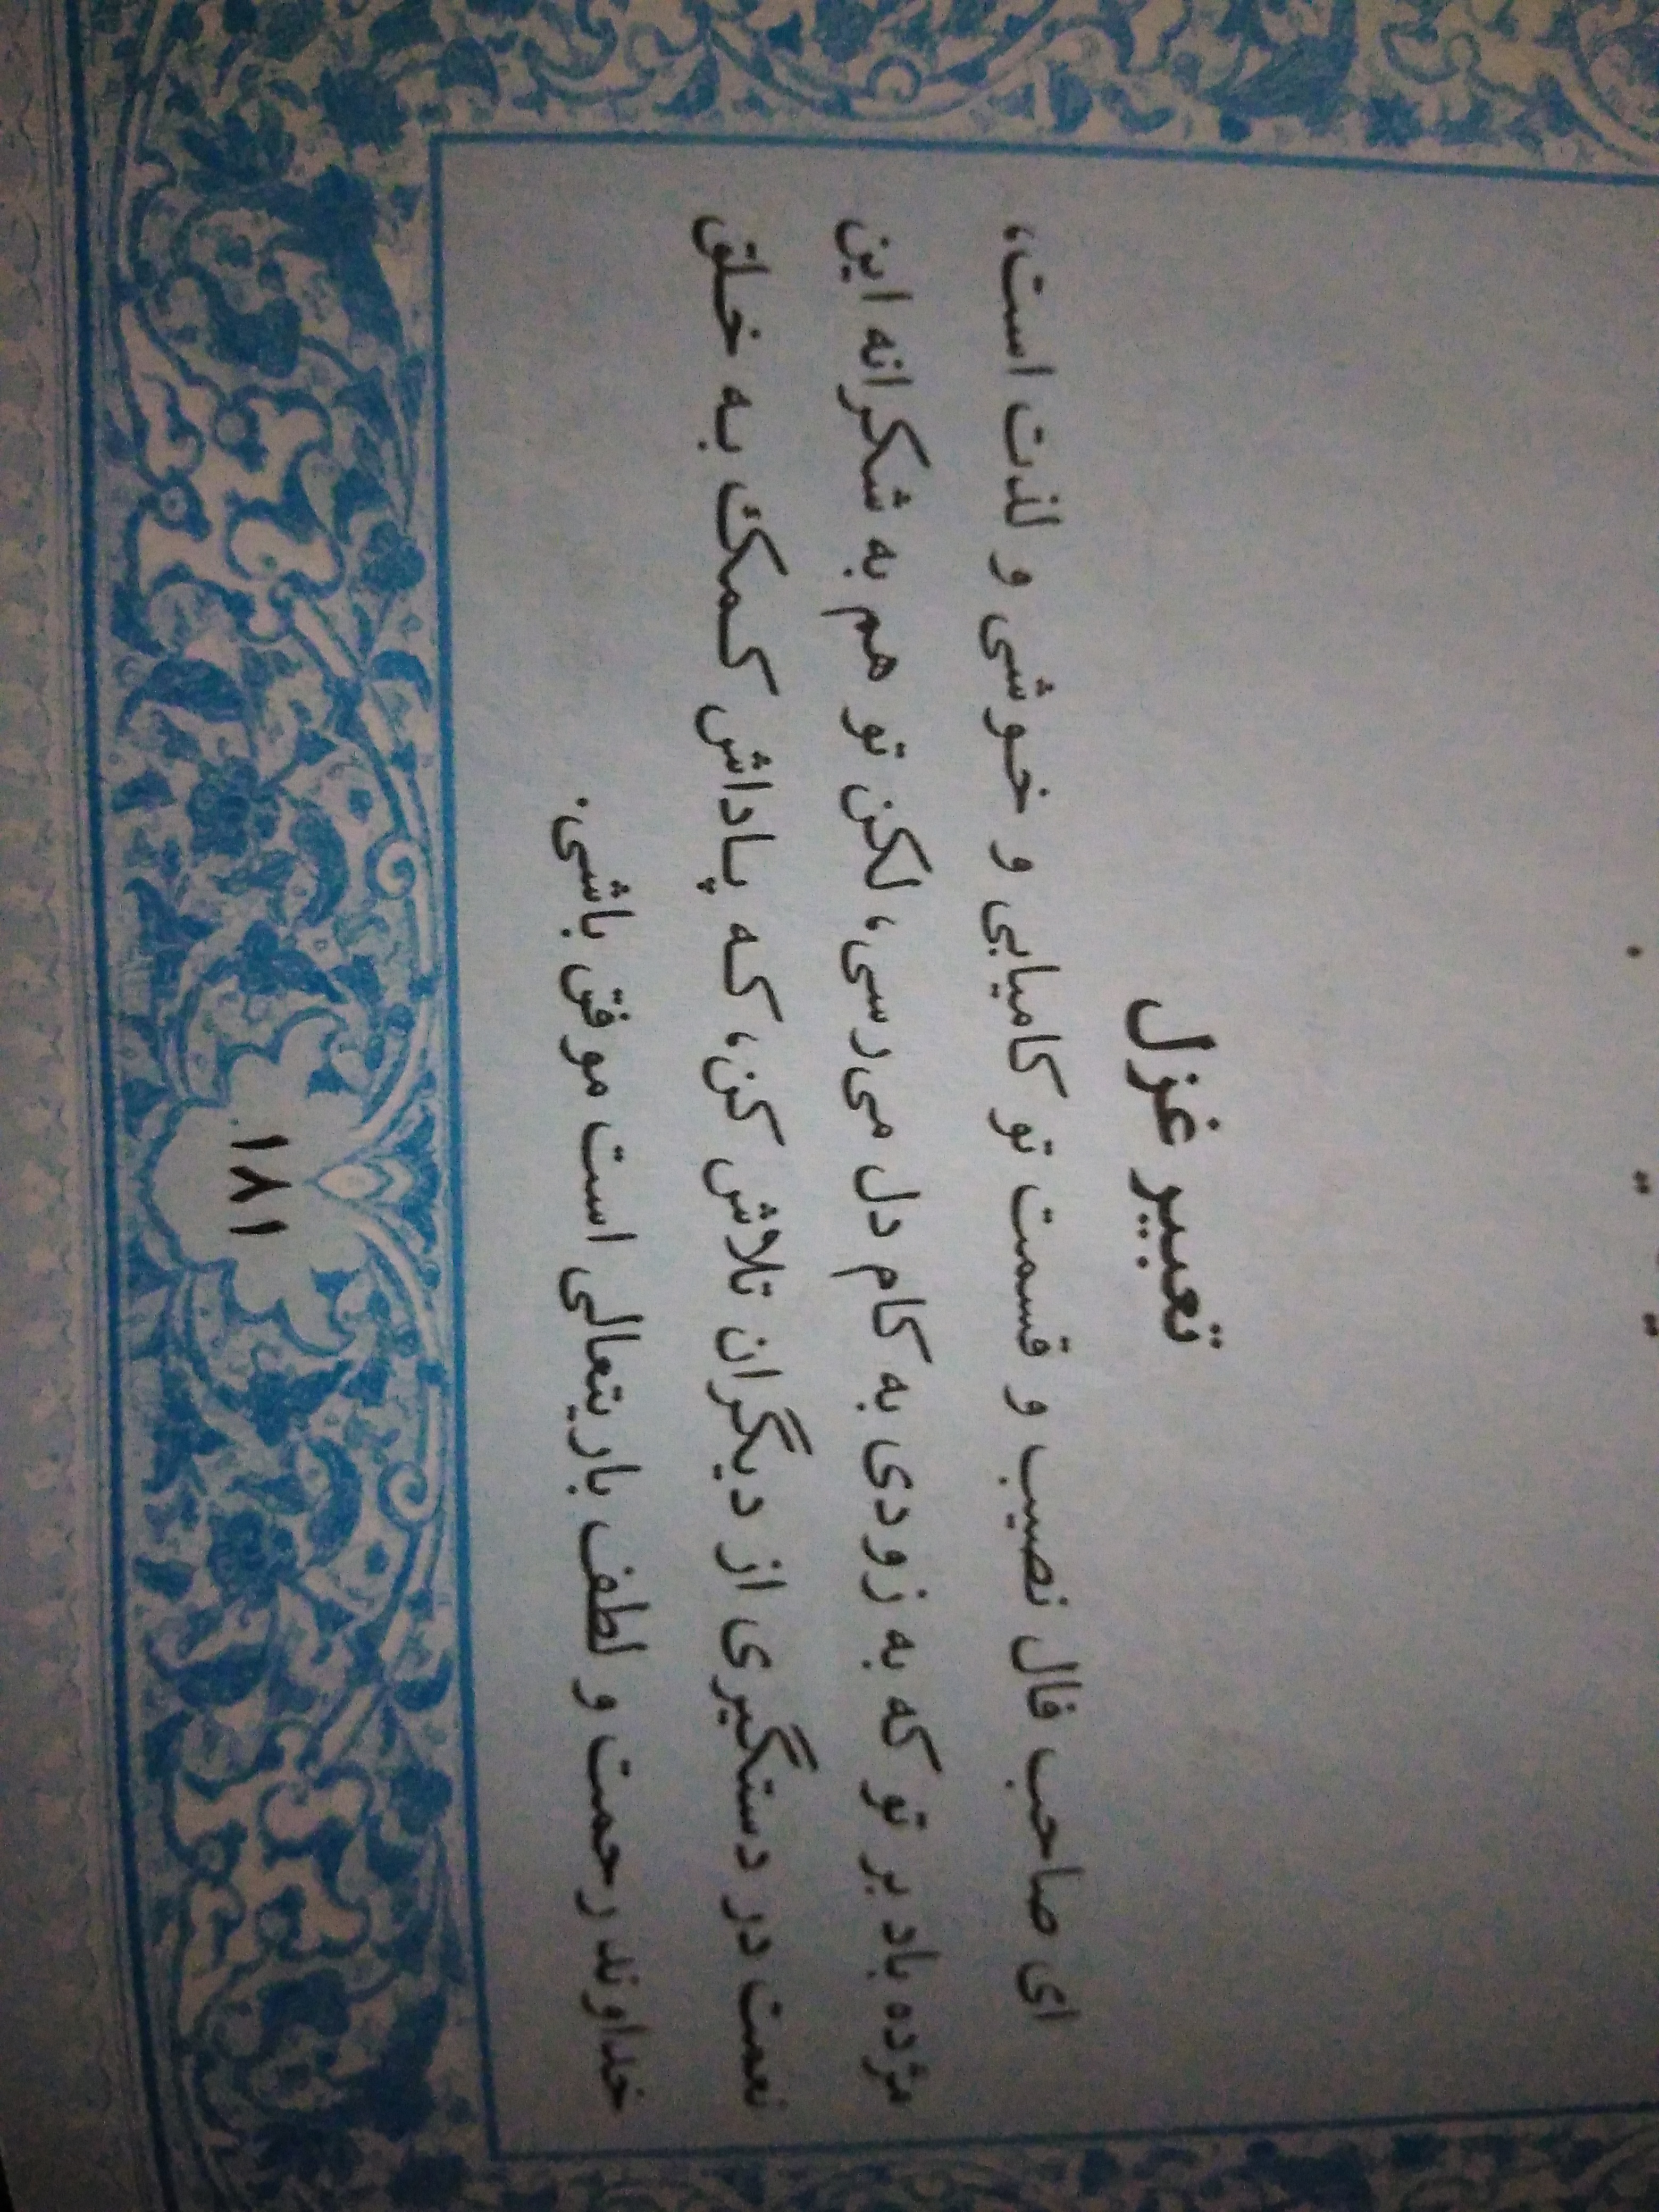 تعبیر غزل
ای صاحب فال نصیب و قسمت تو کامیابی و خوشی و لذت است،
مژده باد بر تو که به زودی به کام دل می‌رسی، لکن تو هم به شکرانه این
نعمت در دستگیری از دیگران تلاش کن، که پاداش کمک به خلق
خداوند رحمت و لطف باریتعالی است موفق باشی.
۱۸۱